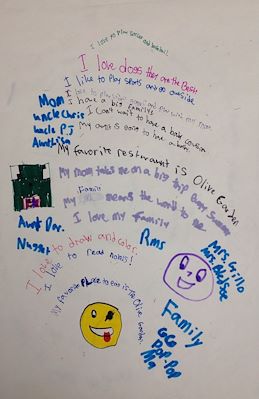 I love to play soccer and
I love dogs they are the Best!
I like to play sports and go outside
I love to play
I have a big families
I Can't wait to have a baby cousin
My aunt is going to have a
Mom
uncle Chris
uncle PJ
Aunt Lisa
My favorite restaurant is Olive Garden
My mom takes me on a big trip Every Summer
My Family means the world to me
I love my family
Aunt Dar.
Nugget
Rms
I love to draw and color
I love to read books!
My favorite place to eat is The Olive Garden
Mrs. Grillo
Mrs. Bledsoe
Family
GG
Pop-Pop